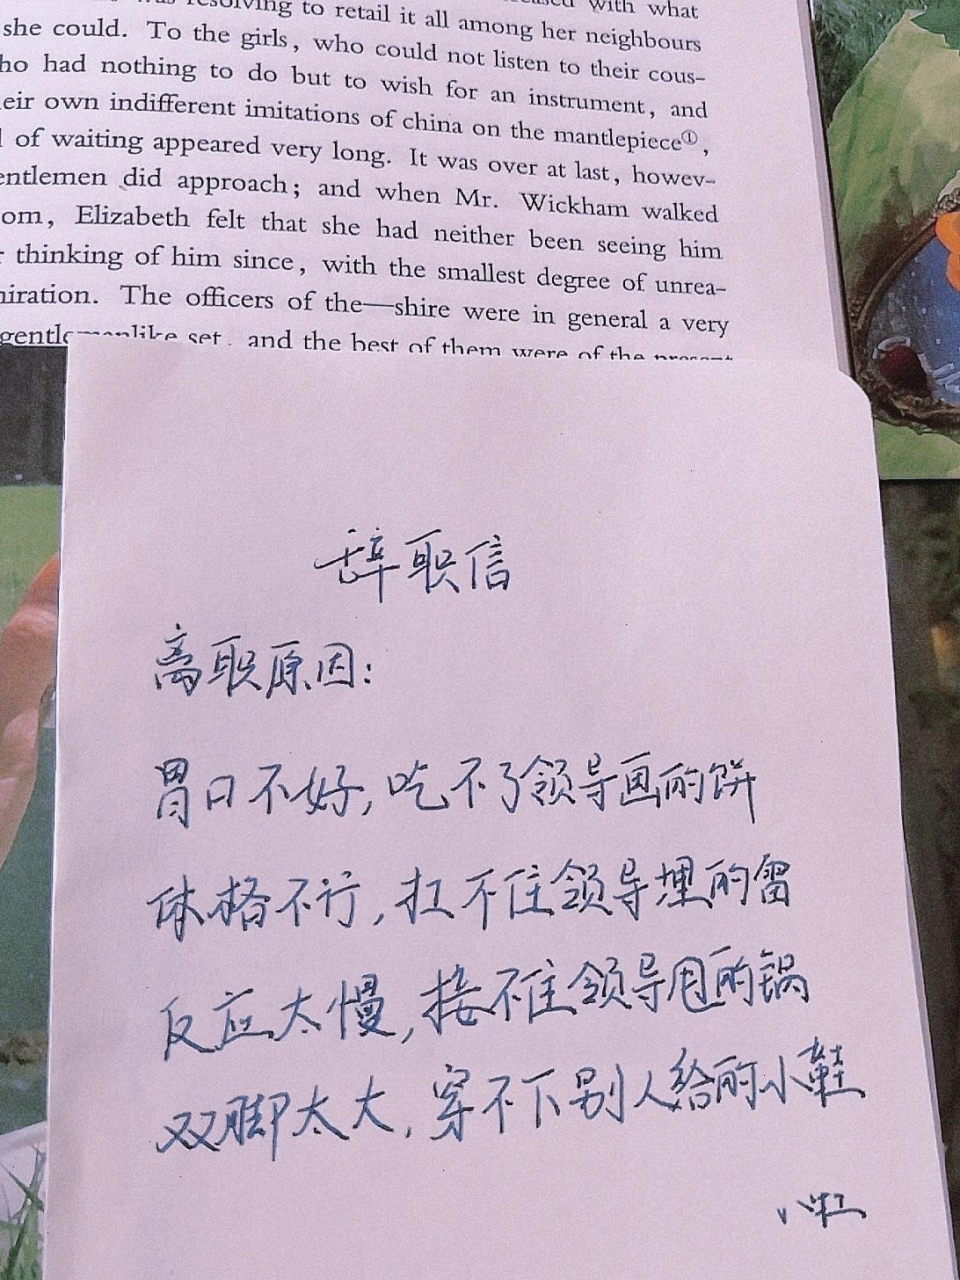 resolving to retail it all among her neighbours
she could. To the girls, who could not listen to their cous-
ho had nothing to do but to wish for an instrument, and
eir own indifferent imitations of china on the mantlepiece①,
of waiting appeared very long. It was over at last, howev-
entlemen did approach; and when Mr. Wickham walked
om, Elizabeth felt that she had neither been seeing him
thinking of him since, with the smallest degree of unrea-
iration. The officers of the—shire were in general a very
gentlemanlike set, and the best of them were of the present
辞职信
离职原因:
胃口不好,吃不了领导画的饼
体格不行,扛不住领导埋的雷
反应太慢,接不住领导甩的锅
双脚太大,穿不下别人给的小鞋